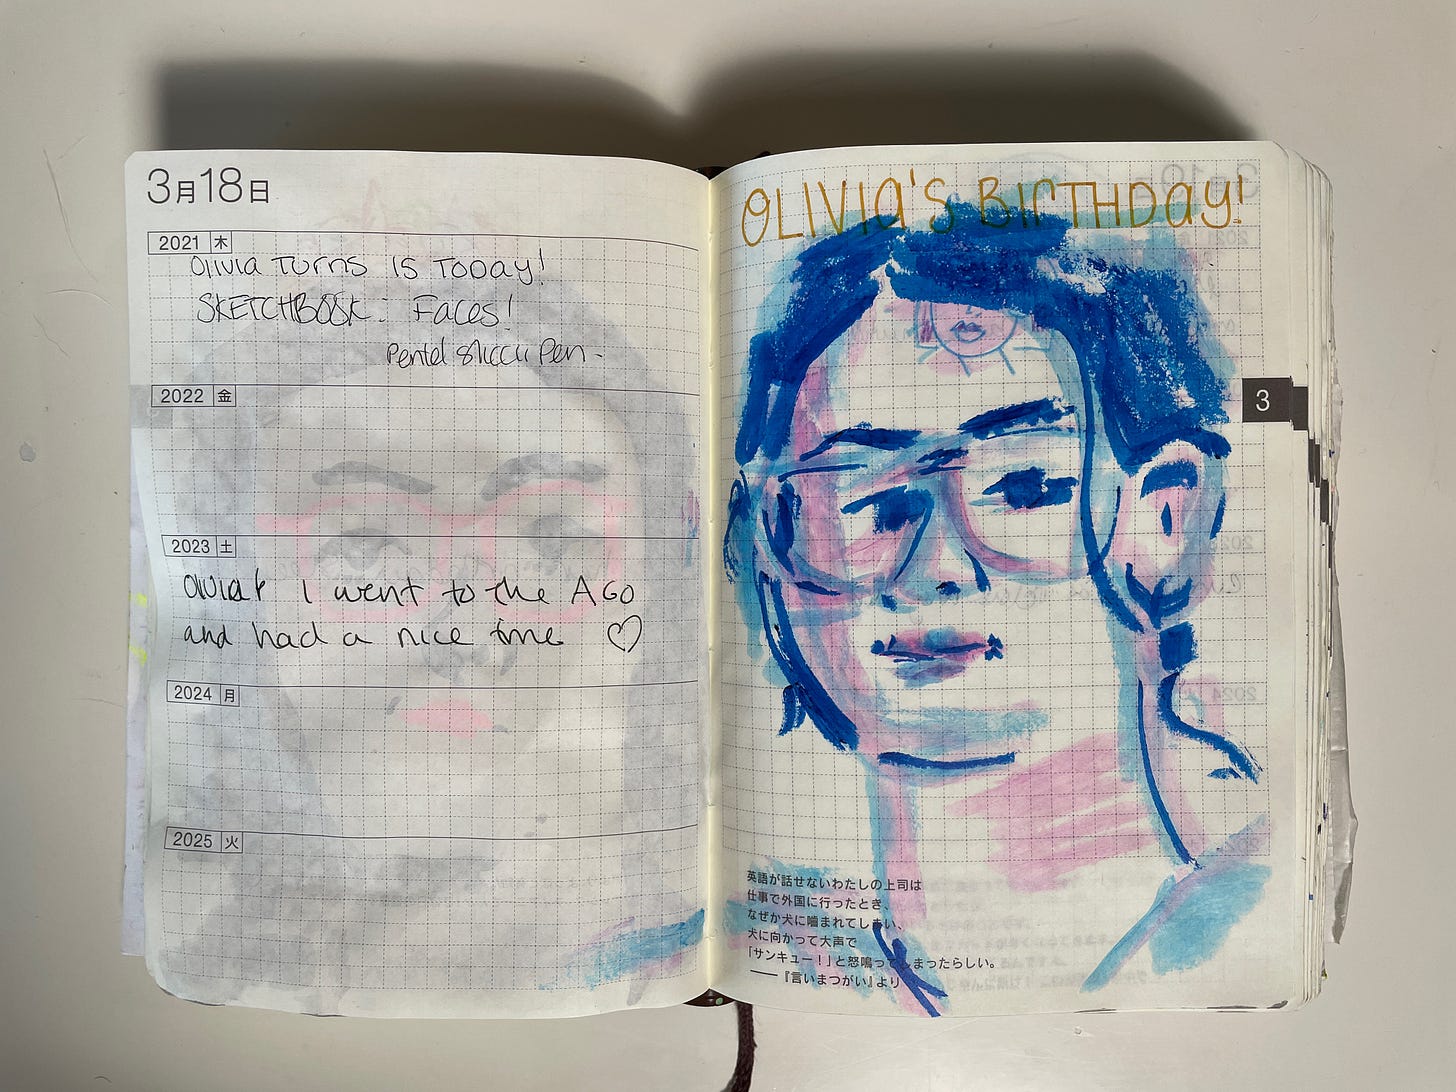 3月18日
2021 木
Olivia Turns 15 Today!
SKETCHBOOK: Faces!
Pentel Slicci Pen-
2022 金
2023 土
Olivia & I went to the AGO
and had a nice time ♡
2024 月
2025 火
OLIVIA'S BIRTHDAY!
3
英語が話せないわたしの上司は
仕事で外国に行ったとき、
なぜか犬に噛まれてしまい、
犬に向かって大声で
「サンキュー!」と怒鳴ってしまったらしい。
──『言いまつがい』より